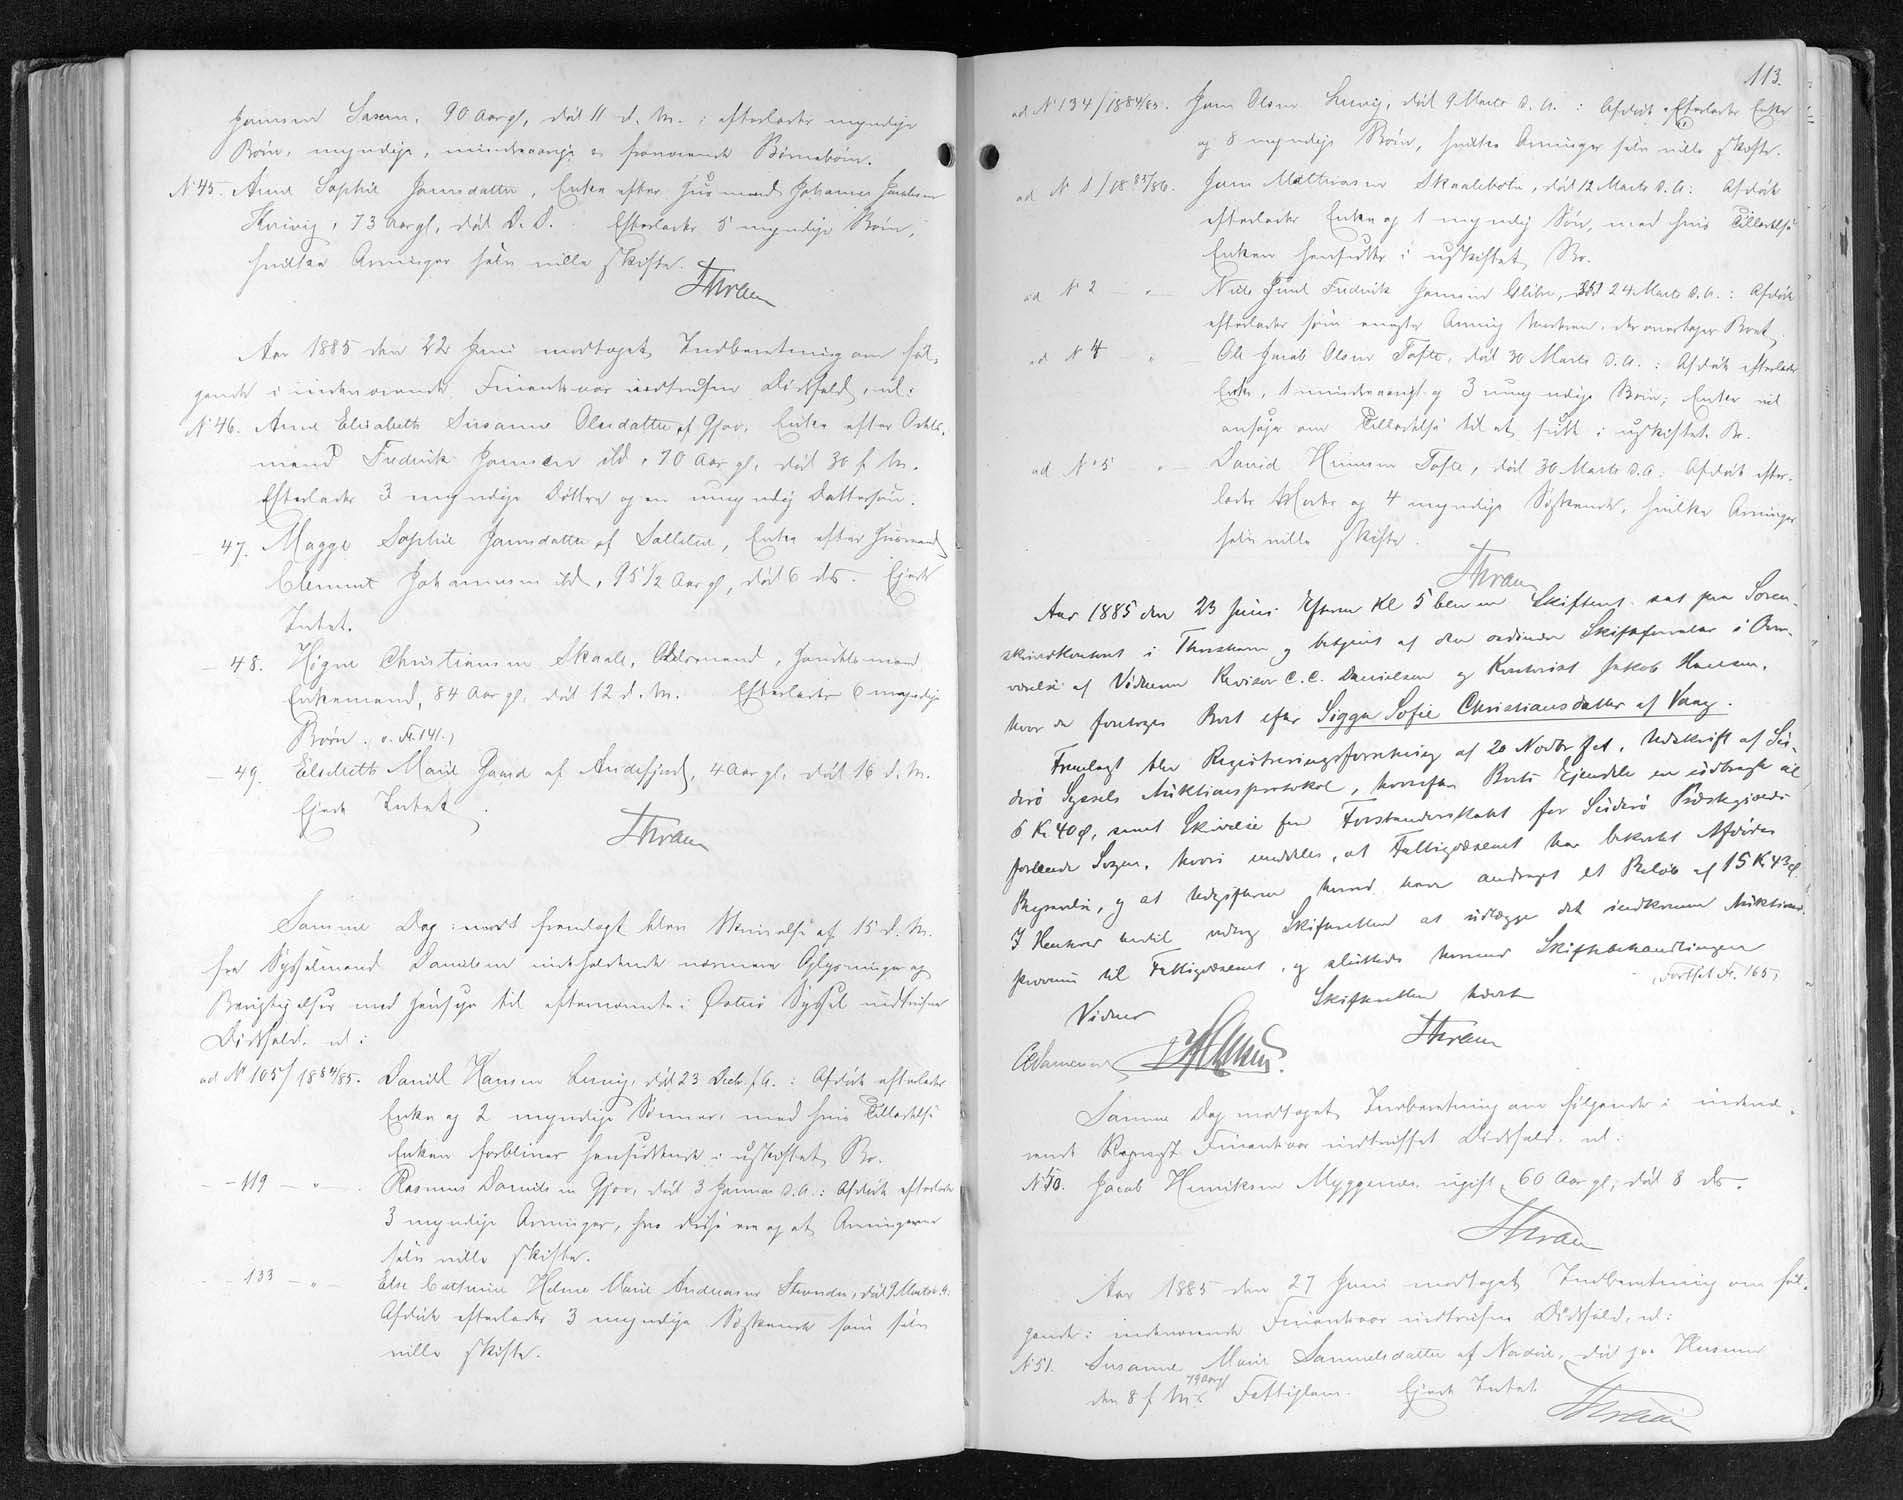 Jensen Saxen, 90 Aar gl, död 11 d. M.: efterlader myndige
Börn, myndige, mindreaarige fraværende Börnebörn.
N° 45. Anne Sophie Joensdatter, Enke efter Huusmand Johannes Jacobsen
Kvivig, 73 Aar gl, död D. D. Efterlader 5 myndige Börn,
hvilke Arvinger selv ville skifte.
Thran
Aar 1885 den 22 Juni modtoges Indberetning om föl-
gende i indeværende Finantsaar indtrufne Dödsfald, nl:
N° 46. Anne Elisabeth Susanne Olesdatter af Gjov, Enke efter Odels-
mand Fredrik Joensen ibd, 70 Aar gl, död 30 f. M.
Efterlader 3 myndige Döttre og en umyndig Dattersön.
- 47. Magge Sophie Joensdatter af Selletræ, Enke efter Huusmand
Clement Johannesen ibd, 95 1/2 Aar gl, död 6 ds. Ejede
Intet.
- 48. Högne Christiansen Skaale, Odelsmand, Handelsmand
Enkemand, 84 Aar gl, död 12 d. M. Efterlader 6 myndige
Börn. v. Fr. 141.)
- 49. Elsebeth Marie Gaard af Andefjord, 4 Aar gl, död 16 d. M.
Ejede Intet.
Thran
Samme Dag: fremlagt blev Skrivelse af 15 d. M.
fra Sysselmand Danielsen indeholdende nærmere Oplysninger og
Berigtigelser med Hensyn til efternævnte i Österö Syssel indtrufne
Dödsfald, nl:
ad N° 105/1884/85. Daniel Hansen Lervig, död 23 Decbr. f. A.: Afdöde efterlader
Enke og 2 myndige Sönner, med hvis Tilladelse
Enken forbliver hensiddende i uskiftet Bo.
- - 119 - " - Rasmus Danielsen Gjov, död 3 Januar d. A.: Afdöde efterlader
3 myndige Arvinger, hvo disse ere og at Arvingerne
selv ville skifte.
- - 133 - " - Else Cathrine Helene Marie Andreasen Strender, död 9 Marts d. A:
Afdöde efterlader 3 myndige Söskende som selv
ville skifte.
113.
ad N° 134/1884/85. Joen Olsen Lervig, död 9 Marts d. A.: Afdöde efterlader Enke
og 8 myndige Börn, hvilke Arvinger selv ville skifte.
ad N° 1/1885/86. Joen Matthiasen Skaalebotn, död 12 Marts d. A: Afdöde
efterlader Enke og 1 myndig Sön, med hvis Tilladelse
Enken hensidder i uskiftet Bo.
ad N° 2 - " - Niels Juul Fredrik Joensen Glibre, död 24 Marts d. A.: Afdöde
efterlader som eneste Arving Moderen, der overtager Boet.
ad N° 4 " - Ole Jacob Olsen Tofte, död 30 Marts d. A.: Afdöde efterlader
Enke, 1 mindreaarigt og 3 umyndige Börn; Enken vil
ansöge om Tilladelse til at sidde i uskiftet Bo.
ad N° 5 " - David Hansen Tofte, död 30 Marts d. A: Afdöde efter-
lader Moder og 4 myndige Söskende, hvilke Arvinger
selv ville skifte.
Thran
Aar 1885 den 23 Juni Efterm Kl 5 blev en Skifteret sat paa Soren-
skriverkontoret i Thorshavn og betjent af den ordinære Skifteforvalter i Over-
værelse af Vidnerne Revisor C. C. Danielsen og Kontorist Jakob Hansen,
hvor da foretoges Boet efter Sigga Sofie Christiansdatter af Vaag.
Fremlagt blev Registreringsforretning af 20 Novbr f A, Udskrift af Su-
derö Syssels Auktionsprotokol, hvorefter Boets Ejendele ere udbragte til
6 Kr 40 Ø, samt Skrivelse fra Forstanderskabet for Suderö Præstegjælds
sydlige Sogne, hvori meddeles, at Fattigvæsenet har bekostet Afdödes
Begravelse, og at Udgifterne herved have andraget et Beløb af 15 Kr 43 Ø.
I Henhold hertil vedtog Skifteretten at udlægge det indkomne Auktions-
provenu til Fattigvæsenet, og sluttedes hermed Skiftebehandlingen
(Fortsat Fr. 165)
Skifteretten hævet
Vidner
Thran
CCDanielsen JHansen.
Samme Dag modtoges Indberetning om fölgende i indevæ-
rende Finantsaar indtruffet Dödsfald, nl:
N° 50. Jacob Henriksen Myggenæs, ugift, 60 Aar gl, död 8 ds.
Thran
Aar 1885 den 27 Juni modtoges Indberetning om föl-
gende i indeværende Finantsaar indtrufne Dödsfald, nl:
N° 51. Susanne Marie Samuelsdatter af Nordöre, död paa Husum
79 Aar gl
den 8 f. M. Fattiglem. Ejede Intet
Thran